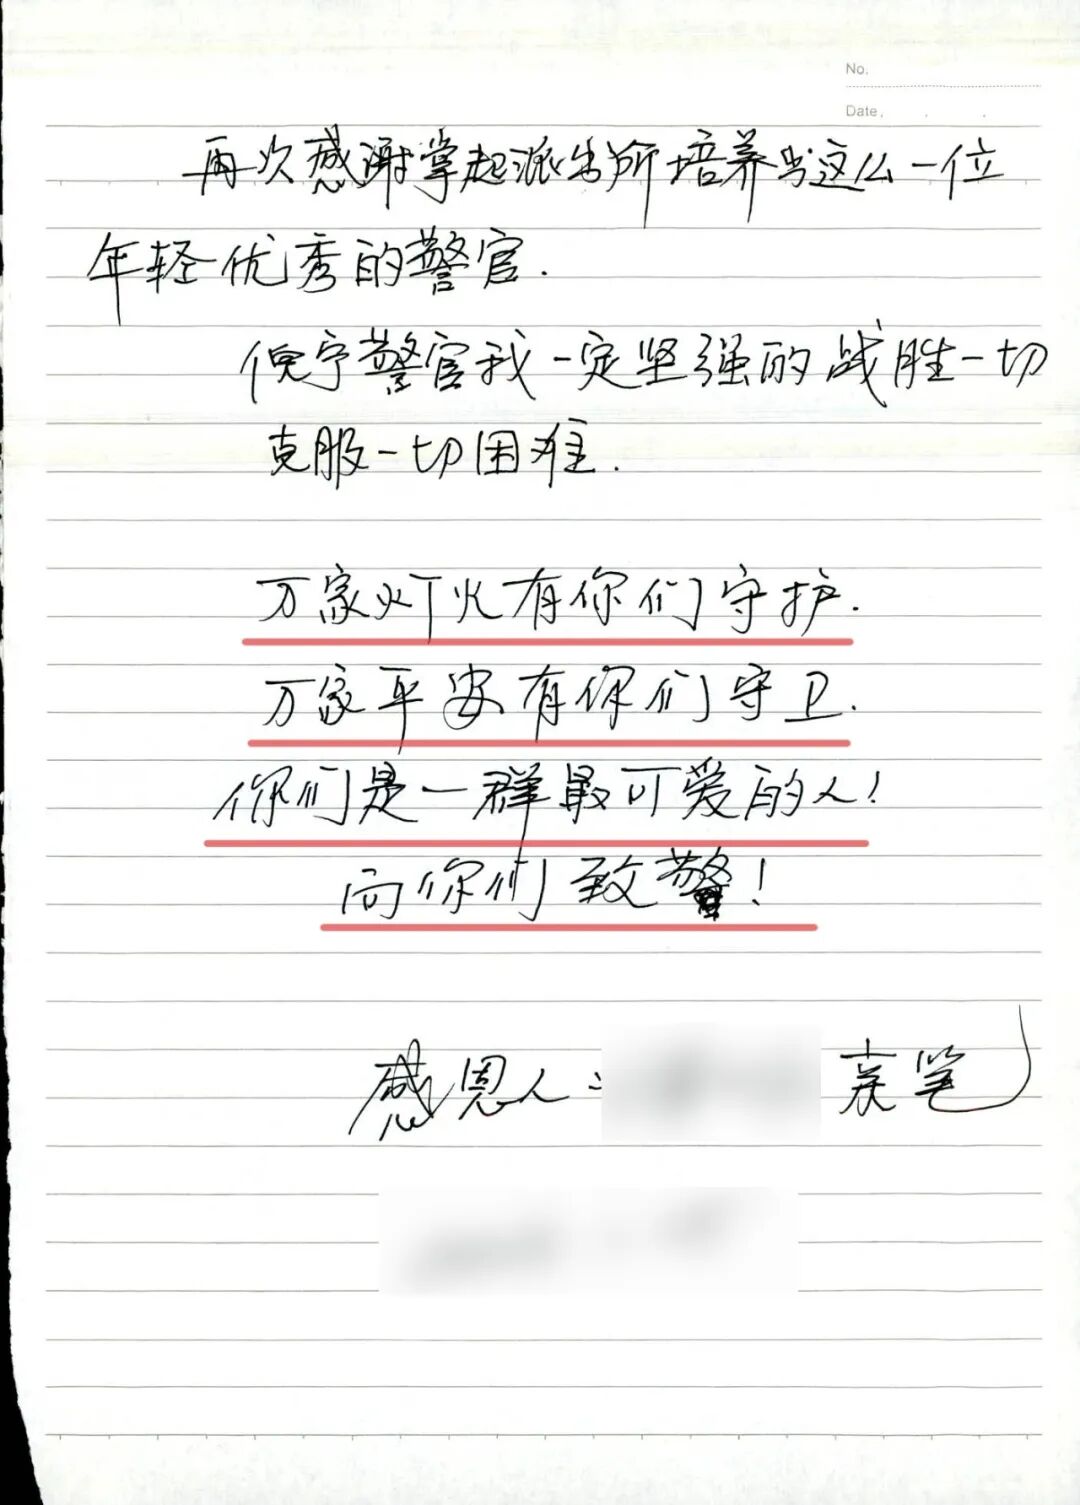 No.
Date
再次感谢掌起派出所培养出这么一位
年轻优秀的警官.
倪宁警官我一定坚强的战胜一切
克服一切困难.
万家灯火有你们守护.
万家平安有你们守卫.
你们是一群最可爱的人!
向你们致警!
感恩人: 亲笔